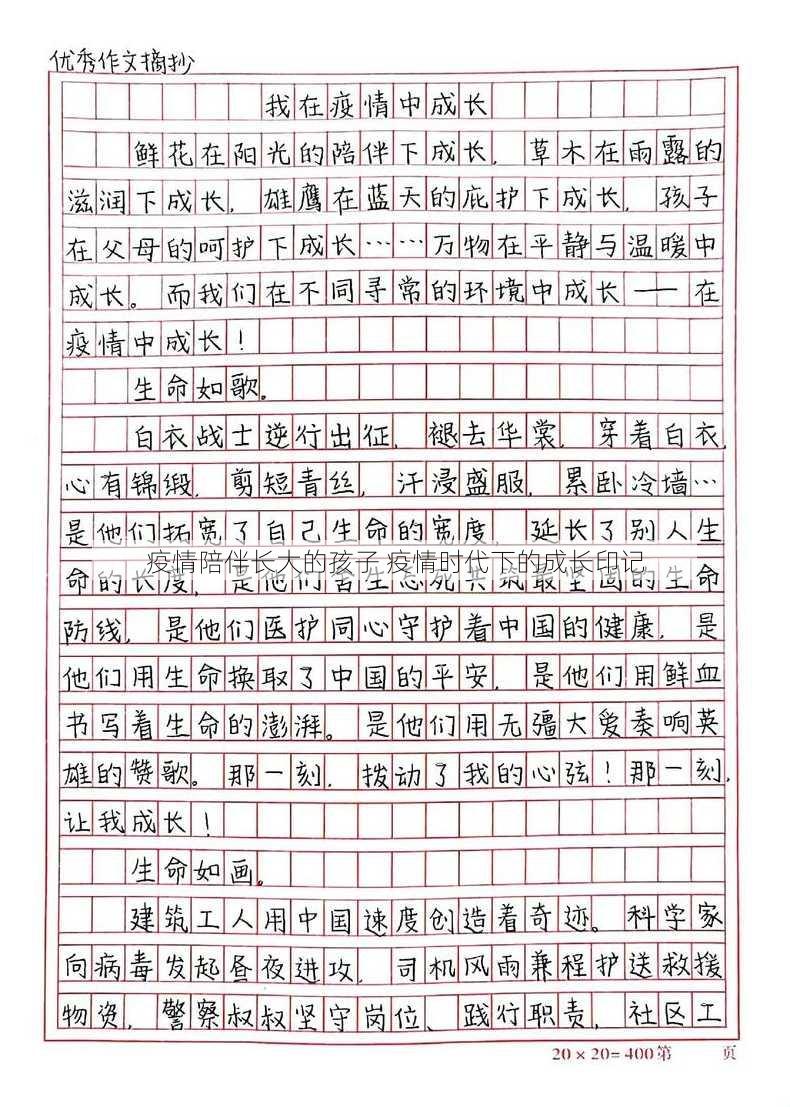 优秀作文摘抄
我在疫情中成长
鲜花在阳光的陪伴下成长，草木在雨露的
滋润下成长，雄鹰在蓝天的庇护下成长，孩子
在父母的呵护下成长……万物在平静与温暖中
成长。而我们在不同寻常的环境中成长——在
疫情中成长！
生命如歌。
白衣战士逆行出征，褪去华裳，穿着白衣，
心有锦缎，剪短青丝，汗浸盛服，累卧冷墙…
是他们拓宽了自己生命的宽度，延长了别人生
疫情陪伴长大的孩子 疫情时代下的成长印记
命的长度，是他们舍生忘死共筑最坚固的生命
防线，是他们医护同心守护着中国的健康，是
他们用生命换取了中国的平安，是他们用鲜血
书写着生命的澎湃。是他们用无疆大爱奏响英
雄的赞歌。那一刻，拨动了我的心弦！那一刻，
让我成长！
生命如画。
建筑工人用中国速度创造着奇迹。科学家
向病毒发起昼夜进攻，司机风雨兼程护送救援
物资，警察叔叔坚守岗位、践行职责，社区工
20×20=400第 页